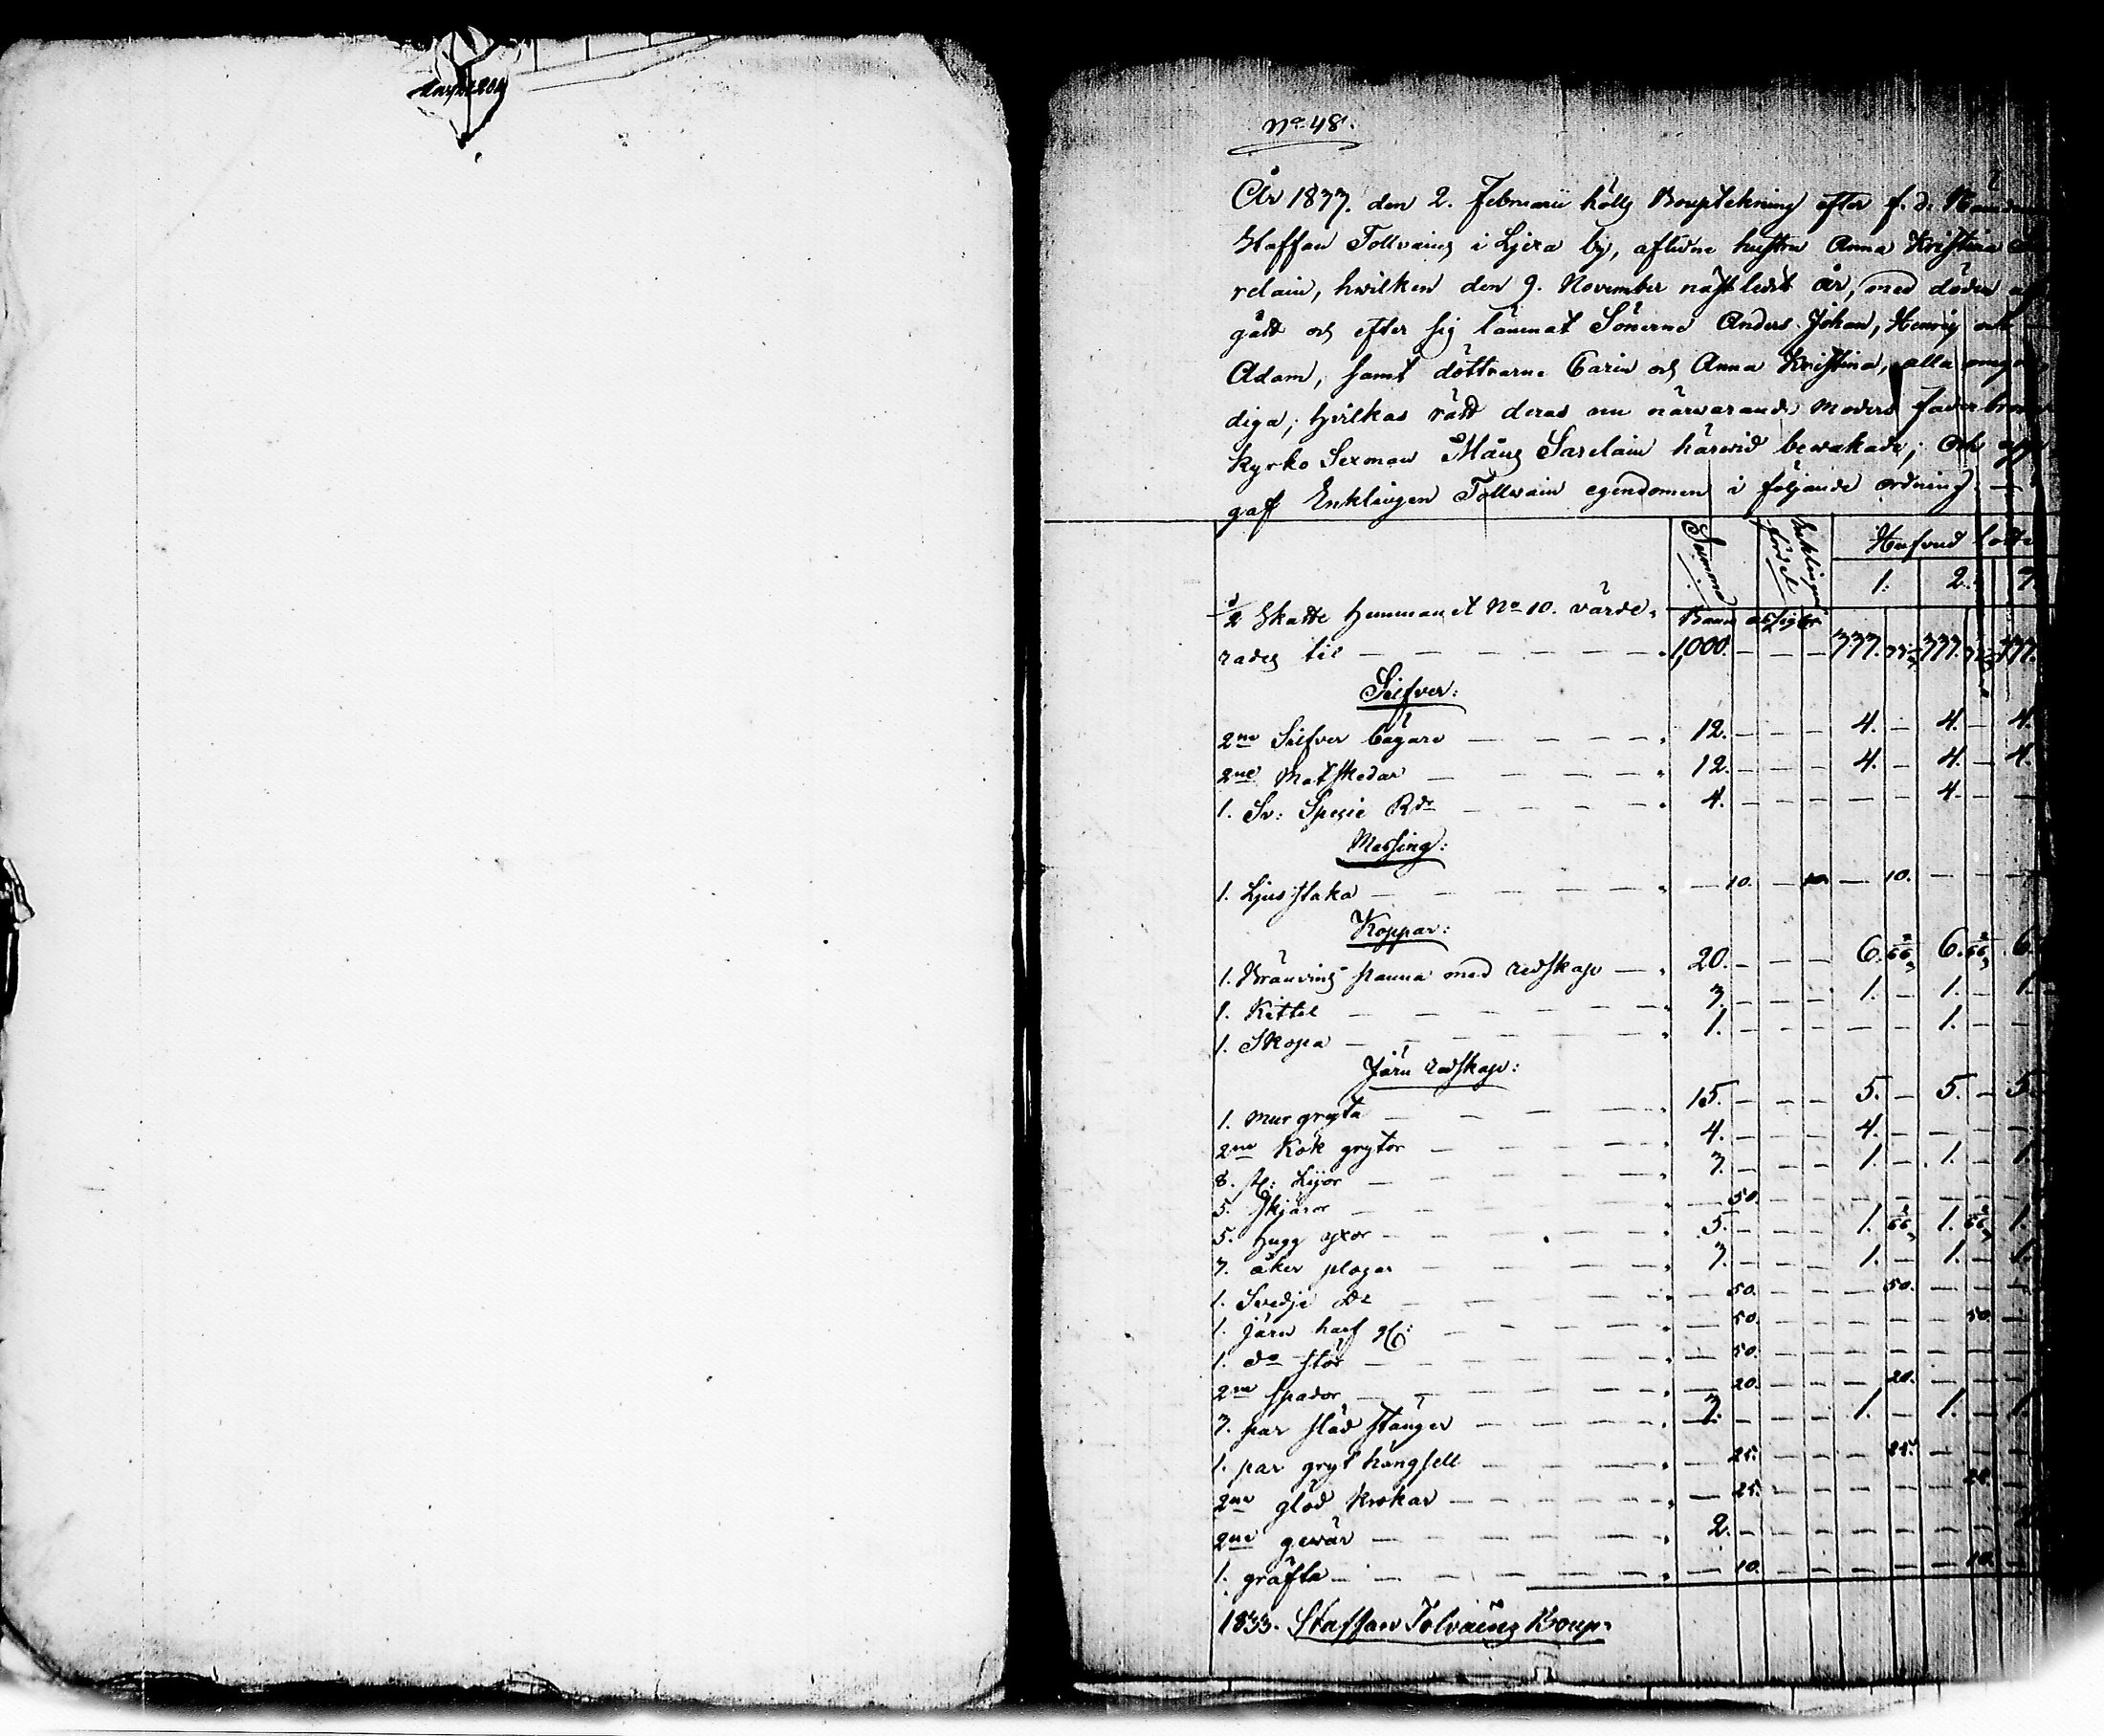 No 48.
År 1833. den 2. Februarii hölls Bouptekning efter f. d.
Staffan Tollvains i Lexa by, aflidne hustru Anna Kristina
relain, hwilken den 9. November näst ledit år, med döden af
gådt och efter sig lämnat Sönerne Anders Johan, Henrig och
Adam, samt döttrarne Carin och Anna Kristina, alla omyn
diga, hvilkas rätt deras nu närwarande Moders fader bror
Kyrko Sexman Måns Sarelain härwid bewakade; Och upp
gaf Enklingen Tollwain egendomen i följande ordning: —
Summa Enklingens fördel Hufvud lotter
1. 2. 3.
1/2 Skatte Hemmanet No 10. värde-
rades til — 1,000. — — — 333. 33 1/3 333. 33 1/3 333.
Silfver:
2ne Silfver bägare — 12. — — — 4. — 4. — 4.
2ne Matskedar — 12. — — — 4. — 4. — 4.
1. Sv: Specie Rdr — 4. — — — — — 4. — —
Messing:
1. Ljus staka — — 10. — 10. — 10. — — —
Koppar:
1. Bränvins panna med redskap — 20. — — — 6. 66 2/3 6. 66 2/3 6.
1. Kittel — 3. — — — 1. — 1. — 1.
1. Skopa — 1. — — — — — 1. — —
Järn redskap:
1. Mur gryta — 15. — — — 5. — 5. — 5.
2ne Kok grytor — 4. — — — 4. — — — —
8. st: Lijor — 3. — — — 1. — 1. — 1.
5. Skjäror — — 50. — — — — — — —
5. Hugg yxor — 5. — — — 1. 66 2/3 1. 66 2/3 1.
3. åker plogar — 3. — — — 1. — 1. — 1.
1. Svedje Do — — 50. — — — 50. — — —
1. järn harf — — 50. — — — — — 50. —
1. do stör — — 50. — — — — — — —
2ne spador — — 20. — — — 20. — — —
3. par släd stänger — 3. — — — 1. — 1. — 1.
1. par gryt hängsell — — 25. — — — 25. — — —
2ne glöd krokar — — 25. — — — — — 25. —
2ne gewär — 2. — — — — — — — 2.
1. gräfta — — 10. — — — — — 10. —
1833. Staffan Tolvains Boup: